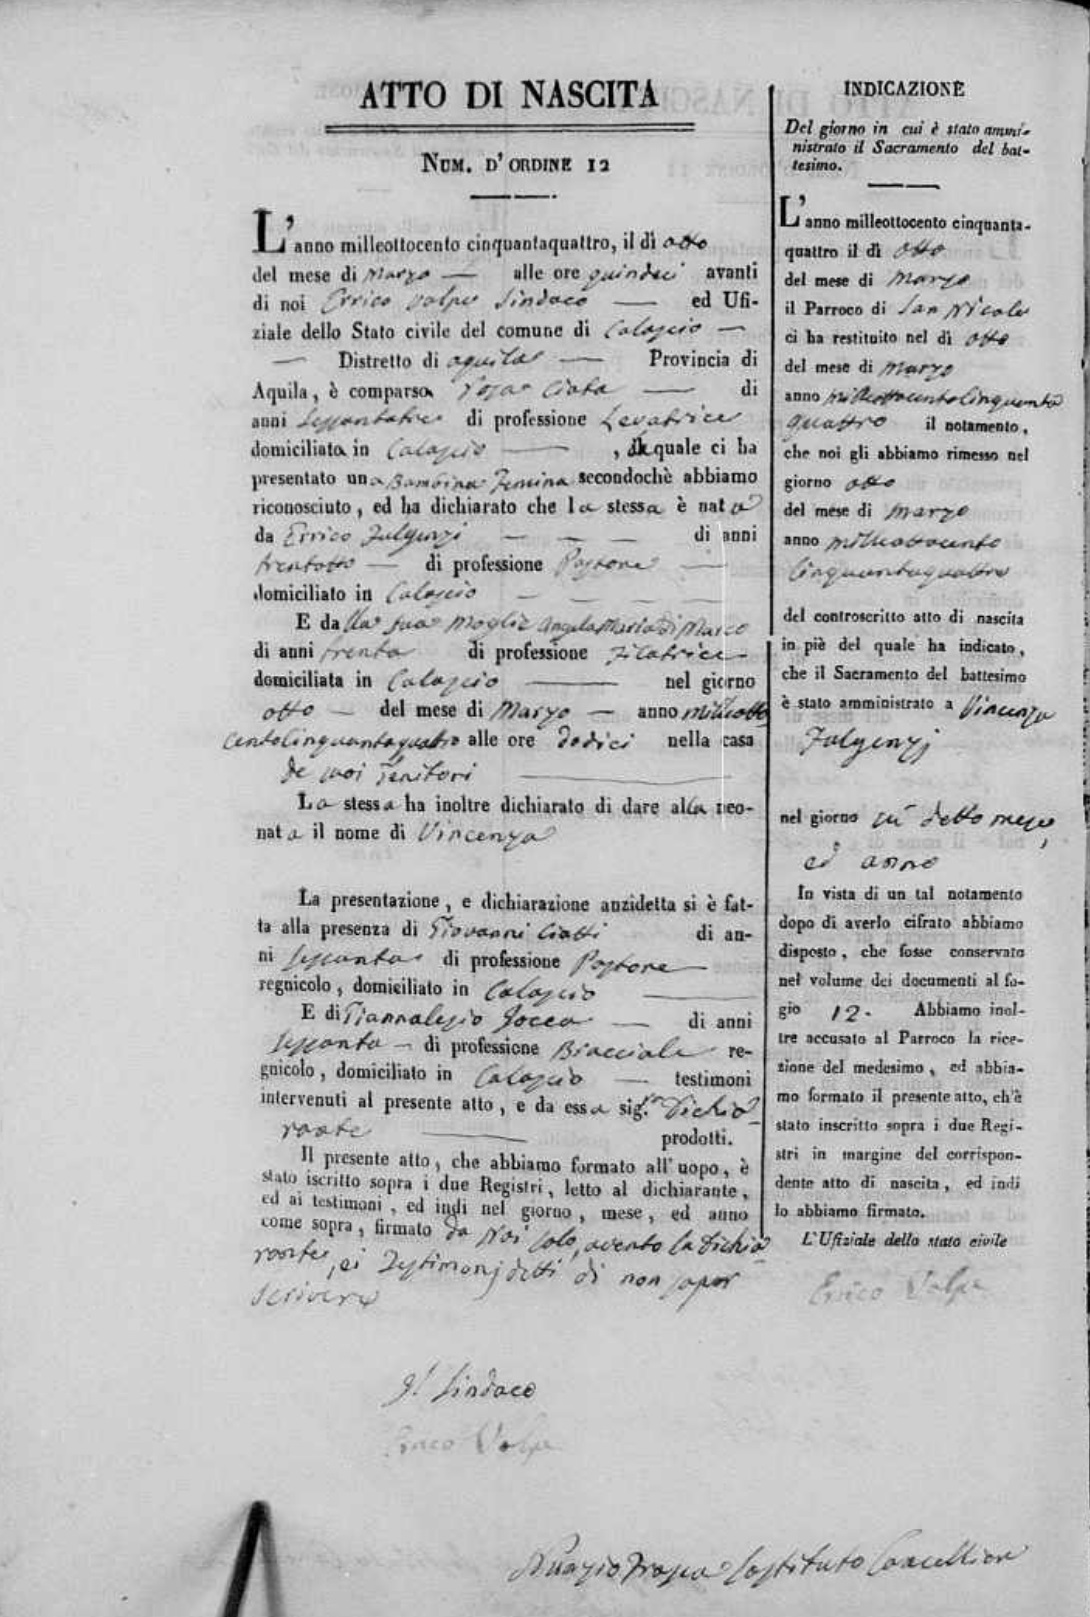 ATTO DI NASCITA
NUM. D'ORDINE 12
L'anno milleottocento cinquantaquattro, il dì otto
del mese di Marzo — alle ore quindeci avanti
di noi Errico Volpe Sindaco — ed Ufi-
ziale dello Stato civile del comune di Calascio —
— Distretto di aquila — Provincia di
Aquila, è comparsa Rosa Ciata — di
anni Sessantatre di professione Levatrice
domiciliata in Calascio — , la quale ci ha
presentato una Bambina Femina secondochè abbiamo
riconosciuto, ed ha dichiarato che la stessa è nata
da Errico Fulgenzj — — — di anni
trentotto — di professione Pastore —
domiciliato in Calascio — — — —
E dalla sua moglie Angela Maria di Marco
di anni trenta di professione Filatrice
domiciliata in Calascio — nel giorno
otto — del mese di Marzo — anno milleotto
centocinquantaquattro alle ore dodici nella casa
de suoi Genitori —
La stessa ha inoltre dichiarato di dare alla neo-
nata il nome di Vincenza
La presentazione, e dichiarazione anzidetta si è fat-
ta alla presenza di Giovanni Ciatti di an-
ni sessanta di professione Pastore
regnicolo, domiciliato in Calascio —
E di Giannalesio Jocca — di anni
sessanta — di professione Bracciale re-
gnicolo, domiciliato in Calascio — testimoni
intervenuti al presente atto, e da essa sig.ra Dichia
rante — prodotti.
Il presente atto, che abbiamo formato all'uopo, è
stato iscritto sopra i due Registri, letto al dichiarante,
ed ai testimoni, ed indi nel giorno, mese, ed anno
come sopra, firmato da Noi solo, avento la Dichia
rante, ei Testimonj detti di non saper
scrivere
Il Sindaco
Errico Volpe
Nunzio Sostituto Cancelliere
INDICAZIONE
Del giorno in cui è stato ammi-
nistrato il Sacramento del bat-
tesimo.
L'anno milleottocento cinquanta-
quattro il dì otto
del mese di Marzo
il Parroco di San Nicola
ci ha restituito nel dì otto
del mese di Marzo
anno milleottocentocinquanta
quattro il notamento,
che noi gli abbiamo rimesso nel
giorno otto
del mese di Marzo
anno milleottocento
cinquantaquattro
del controscritto atto di nascita
in piè del quale ha indicato,
che il Sacramento del battesimo
è stato amministrato a Vincenza
Fulgenzj
nel giorno sud detto mese,
ed anno
In vista di un tal notamento
dopo di averlo cifrato abbiamo
disposto, che fosse conservato
nel volume dei documenti al fo-
gio 12. Abbiamo inol-
tre accusato al Parroco la rice-
zione del medesimo, ed abbia-
mo formato il presente atto, ch'è
stato inscritto sopra i due Regi-
stri in margine del corrispon-
dente atto di nascita, ed indi
lo abbiamo firmato.
L'Ufiziale dello stato civile
Errico Volpe